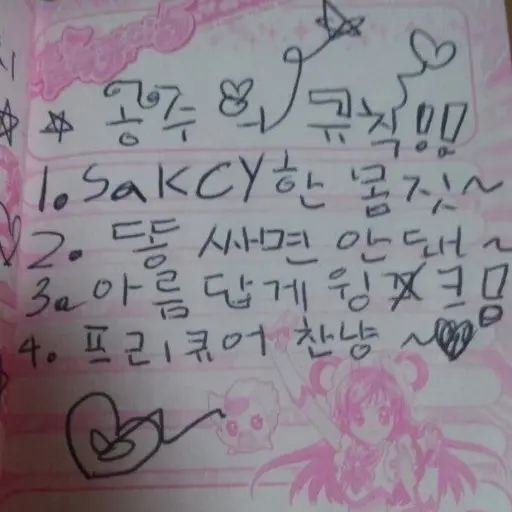 공주의 규칙!!
1. SaKCY한 몸짓~
2. 똥 싸면 안돼~
3. 아름답게 윙크믐
4. 프리큐어 찬냥~